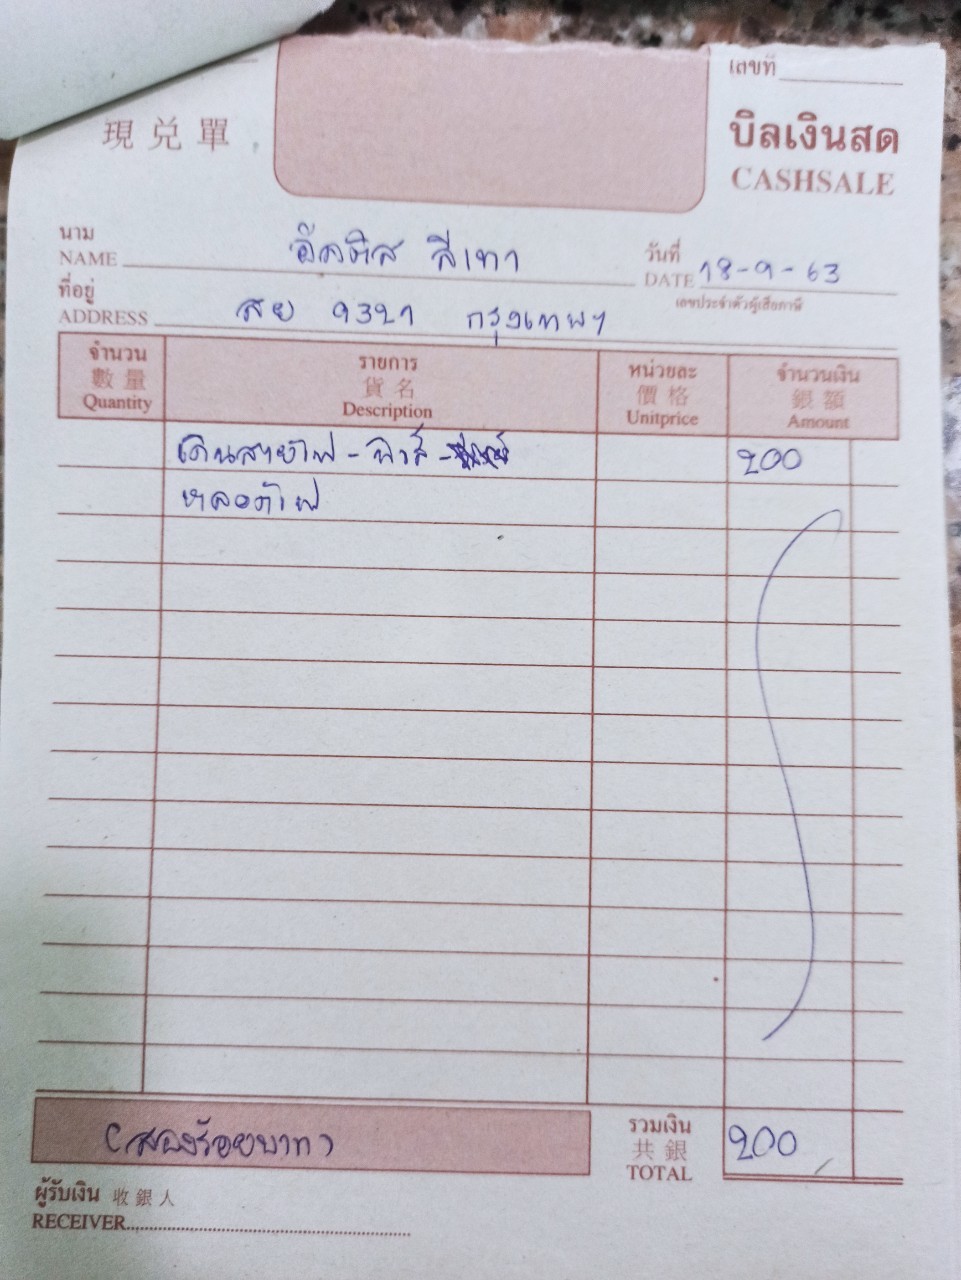 เลขที่
現兑單
บิลเงินสด
CASHSALE
นาม
NAME อัลติส สีเทา
วันที่
DATE 18-9-63
ที่อยู่
ADDRESS สย 9321 กรุงเทพฯ
เลขประจำตัวผู้เสียภาษี
จำนวน รายการ หน่วยละ จำนวนเงิน
數量 貨名 價格 銀額
Quantity Description Unitprice Amount
เดินสายไฟ - 200
หลอดไฟ
(สองร้อยบาท)
รวมเงิน
共銀 200
TOTAL
ผู้รับเงิน 收銀人
RECEIVER